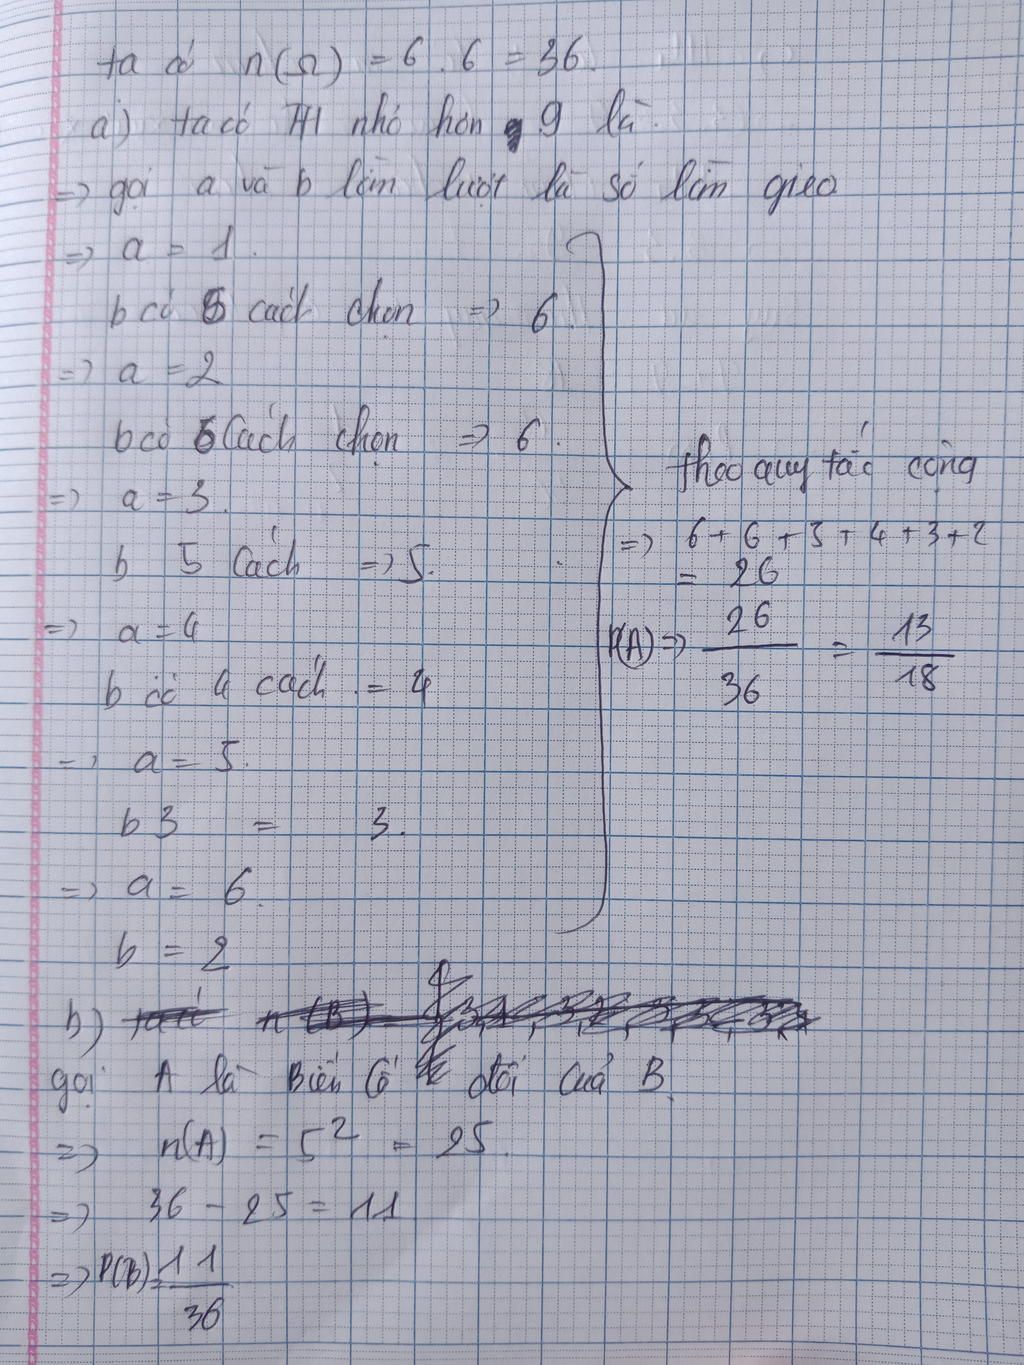 ta có n(Ω) = 6 . 6 = 36.
a) ta có TH nhỏ hơn 9 là.
=> gọi a và b lần lượt là số lần gieo
=> a = 1.
b có 6 cách chọn => 6.
=> a = 2
b có 6 Cách chọn => 6.
=> a = 3.
b 5 Cách => 5.
=> a = 4
b có 4 cách = 4
=> a = 5.
b 3 = 3.
=> a = 6.
b = 2
theo quy tắc cộng
=> 6 + 6 + 5 + 4 + 3 + 2
= 26
P(A) => 26/36 = 13/18
b)
gọi A là Biến Cố đối của B.
=> n(A) = 5² = 25.
=> 36 - 25 = 11
=> P(B) = 11/36